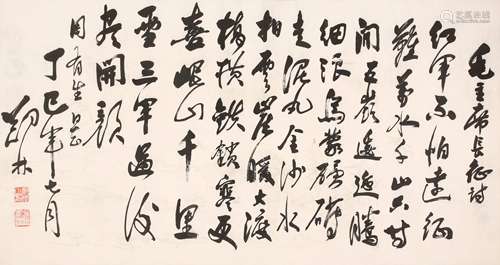 毛主席长征诗
红军不怕远征
难万水千山只等
闲五岭逶迤腾
细浪乌蒙磅礴
走泥丸金沙水
拍云崖暖大渡
桥横铁锁寒更
喜岷山千里
雪三军过后
尽开颜
周有生
丁巳年七月
林